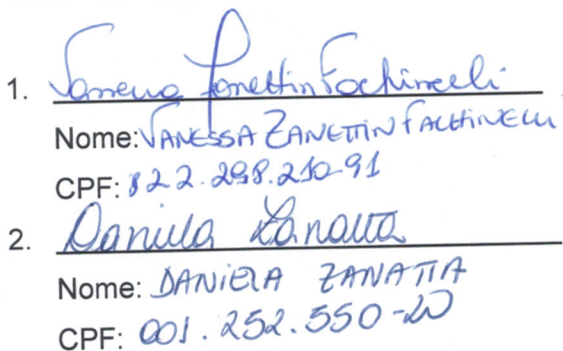 1. Vanessa Zanettin Fachinelli
Nome: VANESSA ZANETTIN FACHINELLI
CPF: 822.298.210-91
2. Daniela Zanatta
Nome: DANIELA ZANATTA
CPF: 001.252.550-20